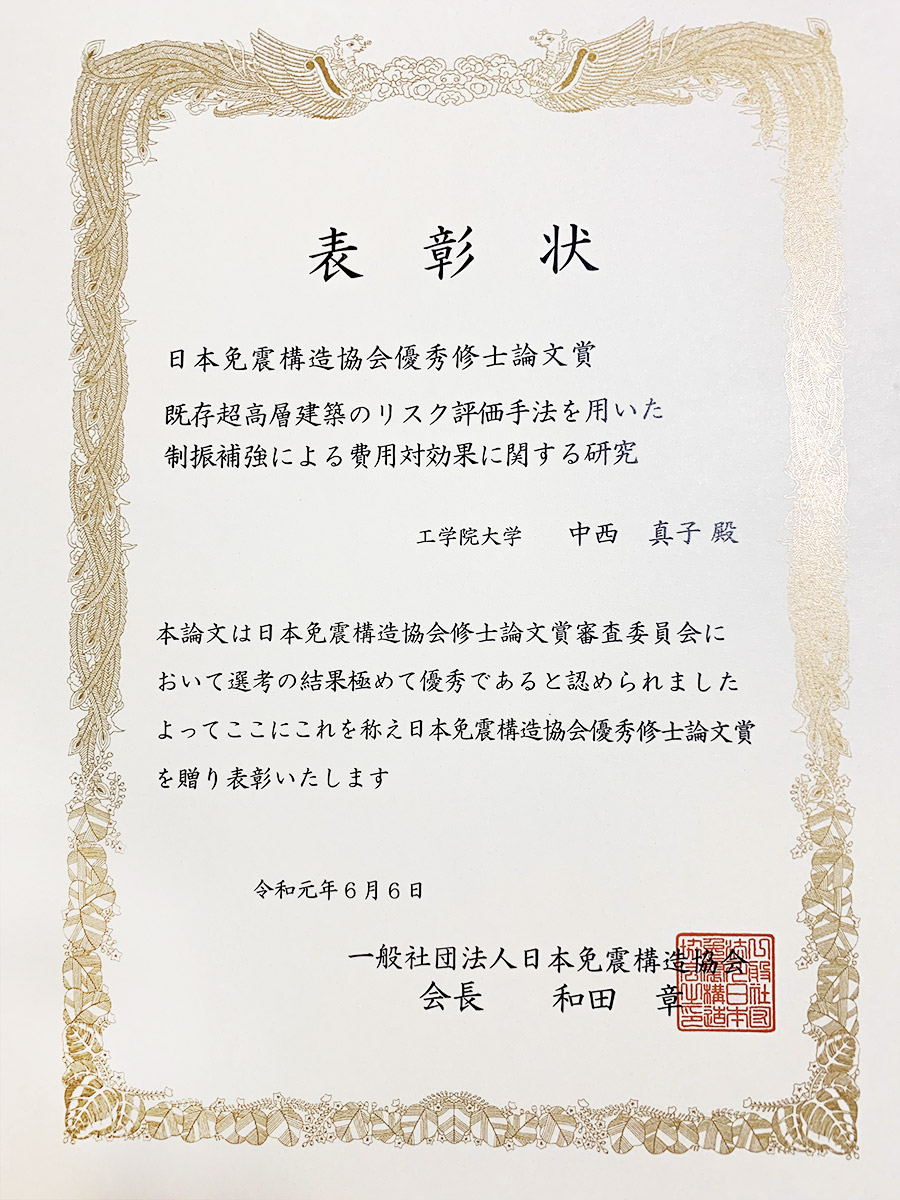 表彰状
日本免震構造協会優秀修士論文賞
既存超高層建築のリスク評価手法を用いた
制振補強による費用対効果に関する研究
工学院大学　中西　真子 殿
本論文は日本免震構造協会修士論文賞審査委員会に
おいて選考の結果極めて優秀であると認められました
よってここにこれを称え日本免震構造協会優秀修士論文賞
を贈り表彰いたします
令和元年６月６日
一般社団法人日本免震構造協会
会長　和田　章